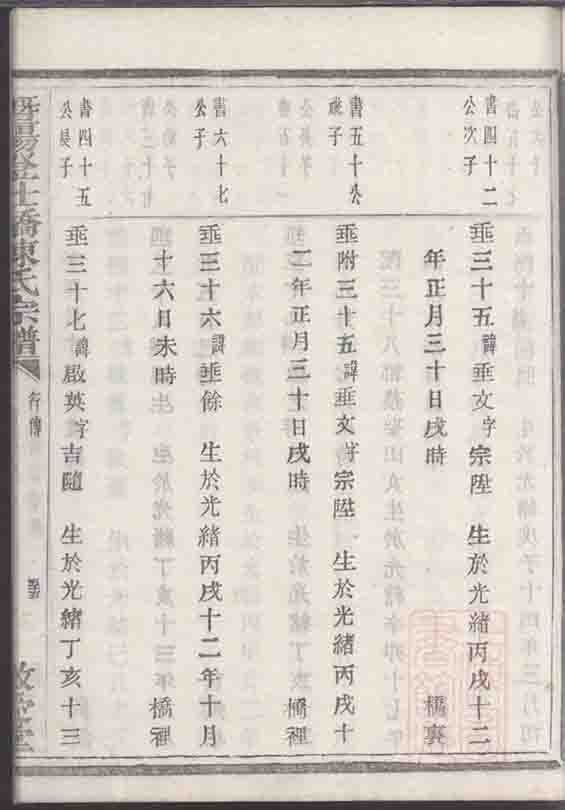 書四十二
公次子
垂三十五諱垂文字宗陞 生於光緒丙戌十二
年正月三十日戌時 橋裏
書五十公
承子
垂附三十五諱垂文字宗陞 生於光緒丙戌十
二年正月三十日戌時 橋裡
書六十七
公子
垂三十六諱垂餘 生於光緒丙戌十二年十月
十六日未時 橋裡
書四十五
公長子
垂三十七諱啟英字吉隨 生於光緒丁亥十三
暨陽 橋陳氏宗譜
行傳